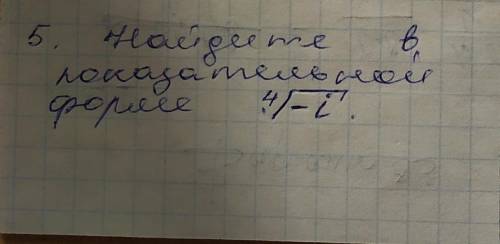 5. Найдите в
показательной
форме ⁴√-i.